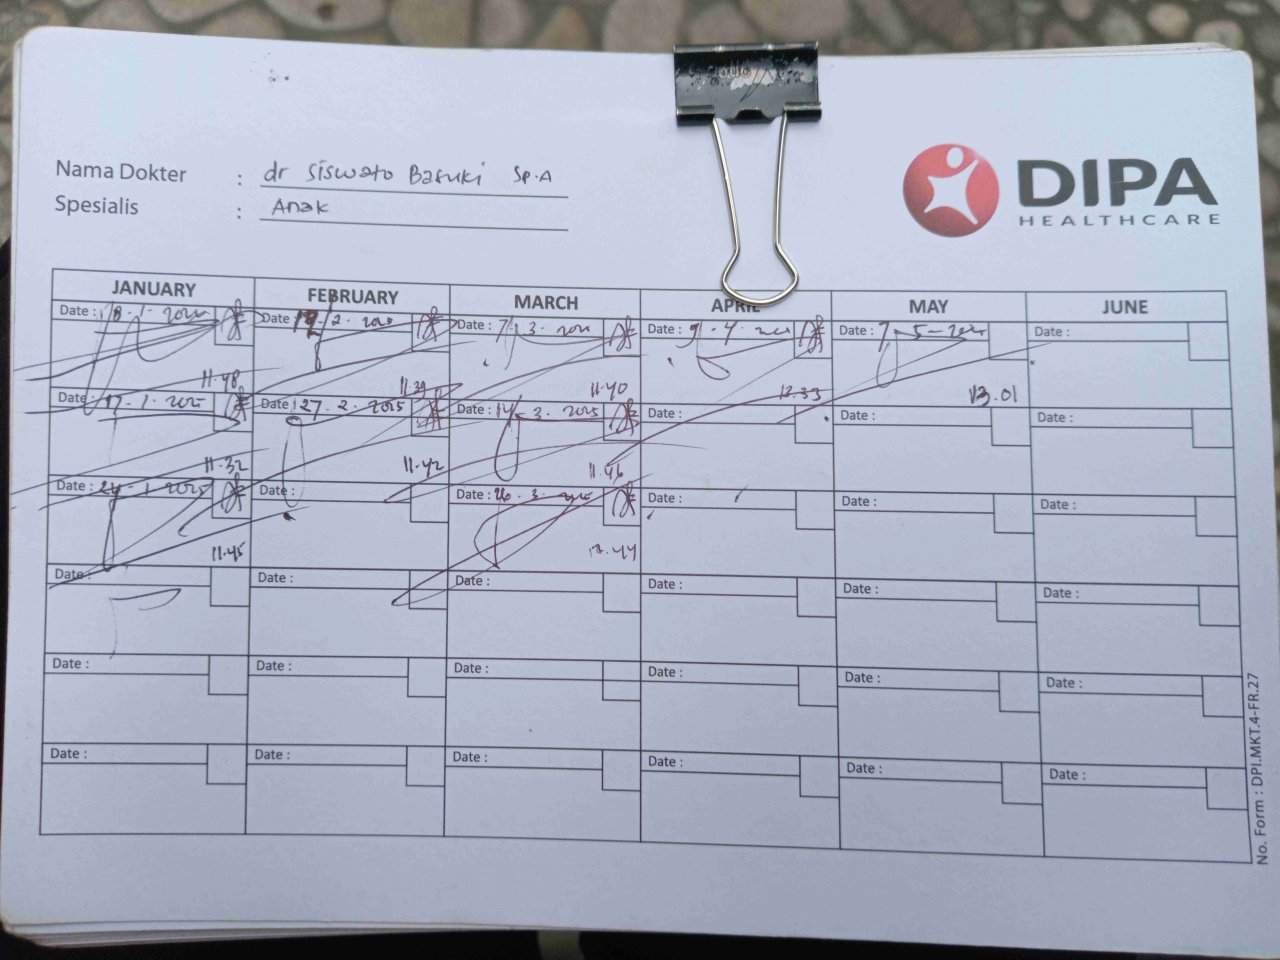 Nama Dokter : dr Siswato Basuki Sp.A
Spesialis : Anak
DIPA
HEALTHCARE
JANUARY FEBRUARY MARCH APRIL MAY JUNE
Date : 8.1.2025 Date 2.2025 Date : 7/3.2025 Date : 9.4.2025 Date : 7-5-2025 Date :
11.48 11.39 11.40 12.33 13.01
Date : 17.1.2025 Date : 27.2.2025 Date : 14.3.2025 Date : Date : Date :
11.32 11.42 11.46
Date : 24.1.2025 Date : Date : 26.3.2025 Date : Date : Date :
11.45 .44
Date : Date : Date : Date : Date : Date :
Date : Date : Date : Date : Date : Date :
Date : Date : Date : Date : Date : Date :
No. Form : DPI.MKT.4-FR.27